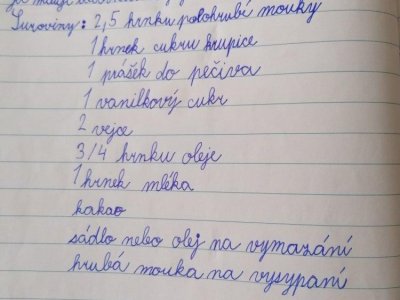 Suroviny: 2,5 hrnku polohrubé mouky
1 hrnek cukru krupice
1 prášek do pečiva
1 vanilkový cukr
2 vejce
3/4 hrnku oleje
1 hrnek mléka
kakao
sádlo nebo olej na vymazání
hrubá mouka na vysypaní